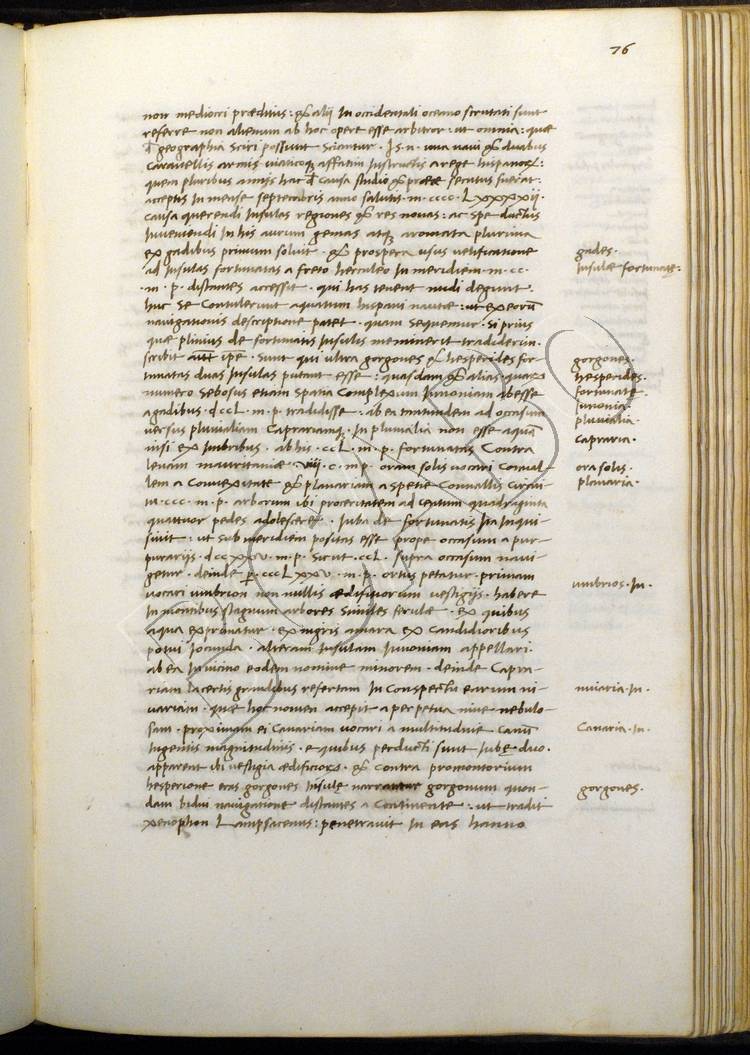 76
non mediocri præditus: & alii In occidentali oceano scrutati sunt
referre non alienum ab hoc opere esse arbitror: ut omnia: quæ
geographia sciri possunt sciantur. Is. n. una navi & duabus
caravellis armis viaticoq; affatim Instructis a rege hispanoꝝ:
quem pluribus annis hac causa studio & secutus fuerat:
acceptis In mense septembris anno salutis. m. cccc. Lxxxxii.
causa querendi Insulas regiones & res novas: ac spe ductus
Inveniendi In his aurum gemas atq; aromata plurima
ex gadibus primum solvit. & prospera usus velificatione
gades.
ad Insulas fortunatas a freto herculeo In meridiem. m. cc.
Insulæ fortunatæ:
.m. p. distantes accessit. qui has tenent nudi degunt.
huc se contulerunt aquatum hispani nautæ: ut ex eorū
navigationis descriptione patet. quam sequemur. Si prius
quæ plinius de fortunatis Insulis meminerit tradiderim.
scribit aūt ipē. sunt qui ultra gorgones & hesperides for-
gorgones.
tunatas duas Insulas putant esse: quasdam & alias quaꝝ
hesperides.
numero Sebosus etiam spatia complexum Iunoniam abesse
fortunatæ.
a gadibus. dccL. m. p. tradidisse: ab ea tantundem ad occasum
Iunonia.
pluvialia.
versus pluvialiam Caprariamq; In pluvialia non esse aquā
capraria.
nisi ex Imbribus. ab his. ccL. m. p. fortunatas Contra
levam mauritaniæ. viii. c. m. p. oram solis vocari Conval
ora solis.
lem a Convexitate & planariam a spetie Convallis circui-
planaria.
tu. ccc. m. p. arborum ibi proceritatem ad centum quadraginta
quattuor pedes adolescere. Iuba de fortunatis Ita Inqui-
sivit: ut sub meridiem positas esse prope occasum a pur-
purariis. dccxxv. m. p. sicut. ccL. supra occasum navi-
getur. deinde p. cccLxxv. m. p. ortus petatur. primam
vocari umbrion non nullis ædifitiorum vestigiis. habere
umbrios. In.
In montibus stagnum arbores similes ferulæ. ex quibus
aqua exprimatur. ex nigris amara ex Candidioribus
potui Iocunda. alteram Insulam Iunoniam appellari.
ab ea In vicino eodem nomine minorem. deinde Capra-
riam lacertis grandibus refertam In conspectu earum ni-
variam. quæ hoc nomen accepit a perpetua nive nebulo-
nivaria. In.
sam. proximam ei Canariam vocari a multitudine canū
Canaria. In.
Ingentis magnitudinis. e quibus perducti sunt Iubę duo.
apparent ibi vestigia ædificioꝝ. & contra promontorium
hesperione eras gorgones Insulę narrantur gorgonum quon-
gorgones.
dam bidui navigatione distantes a Continente: ut tradit
xenophon Lampsacenus: penetravit In eas hanno